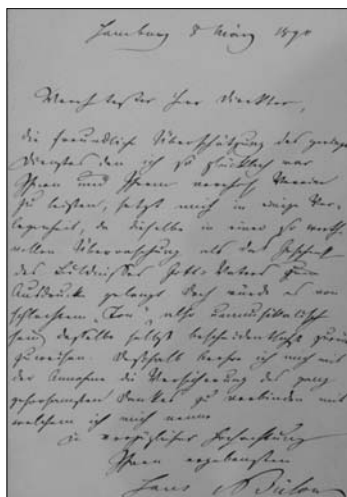 Hamburg 8 März 1890
Verehrtester Herr Direktor,
die freundliche Überschätzung des geringen
Dienstes den ich so glücklich war
Ihnen und Ihrem verehrl. Verein
zu leisten, setzt mich in einige Ver-
legenheit, da dieselbe in einer so werth-
vollen Überraschung als das Geschenk
des Bildnisses Gott-Vaters zum
Ausdrucke gelangt. Doch würde es von
schlechtem „Ton“, also unmusikalisch
sein, dasselbe selbst bescheidentlichst zurück
zuweisen. Desshalb beehre ich mich mit
der Annahme die Versicherung des ganz
gehorsamsten Dankes zu verbinden mit
welchem ich mich nenne
in vorzüglicher Hochachtung
Ihren ergebensten
Hans v Bülow